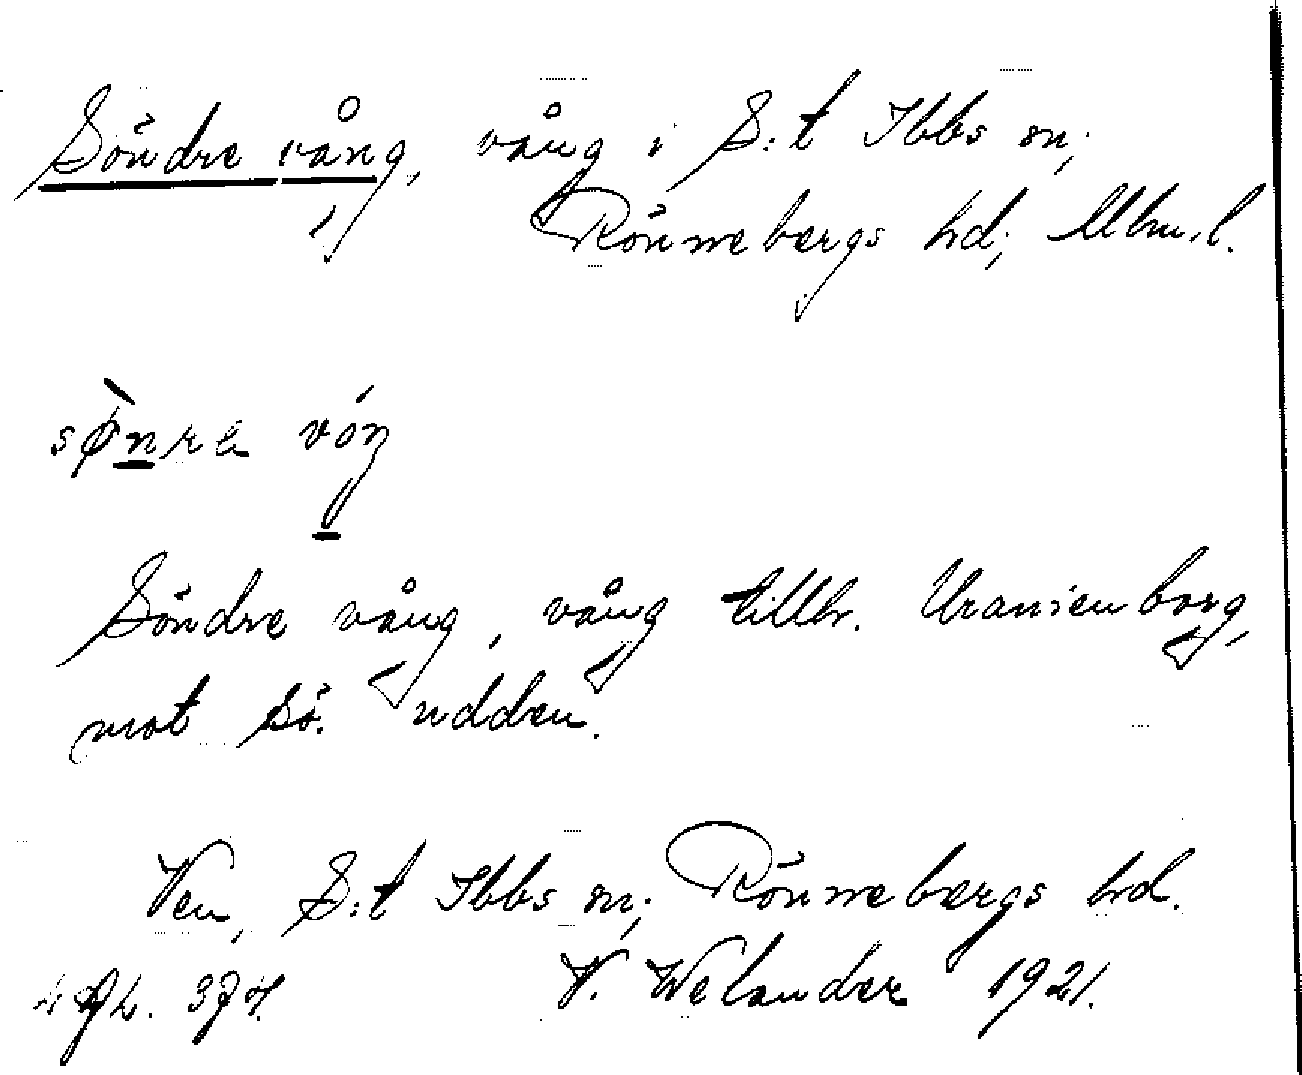 Söndre vång, vång i S:t Ibbs sn;
Rönnebergs hd; Mlm. l.
sø̀nrɛ vóŋ
Söndre vång, vång tillhr. Uranienborg,
mot Sö. udden.
Ven, S:t Ibbs sn; Rönnebergs hd.
V. Welander 1921.